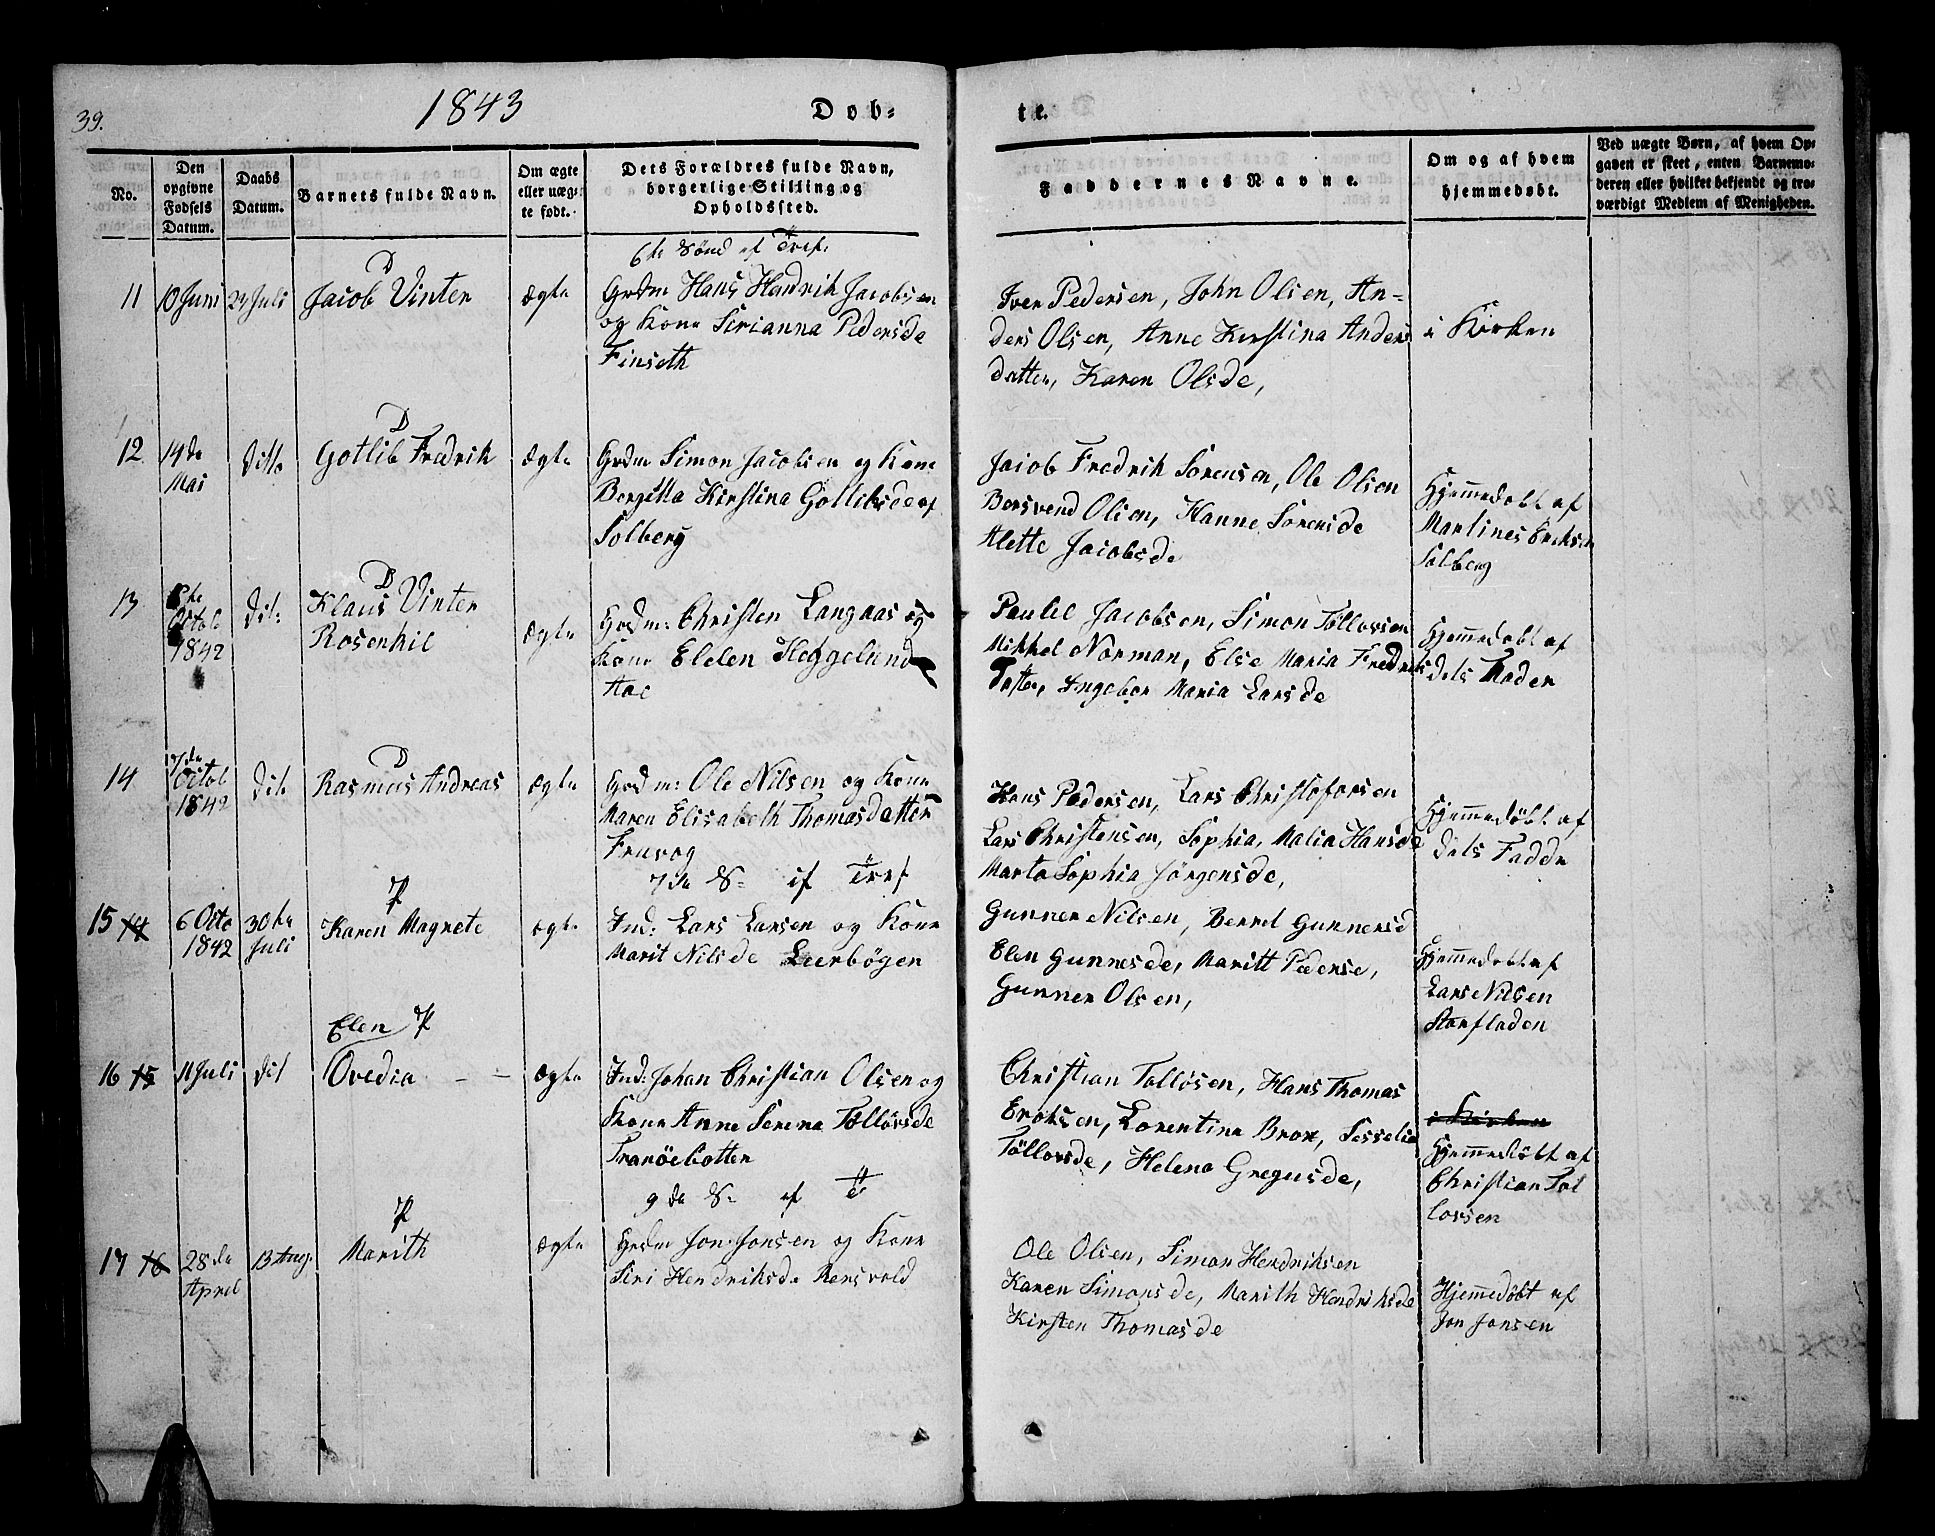 39.
1843
Dob-
te.
No.
Den opgivne Fødsels Datum.
Daabs Datum.
Barnets fulde Navn.
Om ægte eller uægte født.
Dets Forældres fulde Navn, borgerlige Stilling og Opholdssted.
Faddernes Navne.
Om og af hvem hjemmedøbt.
Ved uægte Børn, af hvem Opgaven er skeet, enten Barnemoderen eller hvilket bekjendt og troværdigt Medlem af Menigheden.
6te Sønd af Tref:
11
10 Juni
24 Juli
D
Jacob Vinter
ægte
Grdm Hans Hendrik Jacobsen
og Kone Sirianna Pedersde
Finseth
Iver Pedersen, John Olsen, An-
ders Olsen, Anne Kirstina Anders
datter, Karen Olsde,
i Kirken
12
14de
Mai
Ditto
D
Gotlib Fredrik
Ægte
Grdm Simon Jacobsen og Kone
Bergitta Kirstina Gotlibsde af
Solberg
Jacob Fredrik Sørensen, Ole Olsen
Borsvend Olsen, Hanne Sørensde
Alette Jacobsde
Hjemmedøbt af
Martines Eriksen
Solberg
13
Octob
1842
Dit:
D
Klaus Vinter
Rosenhil
Ægte
Grdm: Christen Langaas og
Kone Elelen Heggelund
Aae
Paulil Jacobsen, Simon Tøllovsen
Mikkel Norman, Else Maria Fredriks
Datter, Ingebor Maria Larsde
Hjemmedøbt af
dets Fader
14
7de
Octob
1842
Dit
D
Rasmus Andreas
Ægte
Grdm: Ole Nilsen og Kone
Maren Elisabeth Thomasdatter
Fruvog
Hans Pedersen, Lars Christofersen
Lars Christensen, Sophia, Malia Hansde
Marta Sophia Jørgensde,
Hjemmedøbt af
dets Fader
7de S: af Tref
15 14
6 Octo
1842
30te
Juli
P
Karen Magrete
ægte
Ind: Lars Larsen og Kone
Marit Nilsde Leerbögen
Gunner Nilsen, Berrel Gunnersd
Elen Gunnesde, Maritt Pederse,
Gunner Olsen,
Hjemmedøbt af
Lars Nilsen
Storfladen
16 15
11 Juli
Dit
Elen P
Ovedia - -
ægte
Ind: Johan Christian Olsen og
Kone Anne Serena Tølløvsde
Tranöebotten
Christian Tolløsen, Hans Thomas
Eriksen, Lorentina Brox, Sesselia
Tøllovsde, Helena Gregusde,
i Kirken
Hjemmedøbt af
Christian Tol
lovsen
9de S: af T
17 16
28de
April
13 Aug:
P
Marith
Ægte
Grdm Jon Jonsen og Kone
Siri Hendriksde Rensvold
Ole Olsen, Simon Hendriksen
Karen Simonsde, Marith Hendriksde
Kirsten Thomasde
Hjemmedøbt af
Jon Jonsen